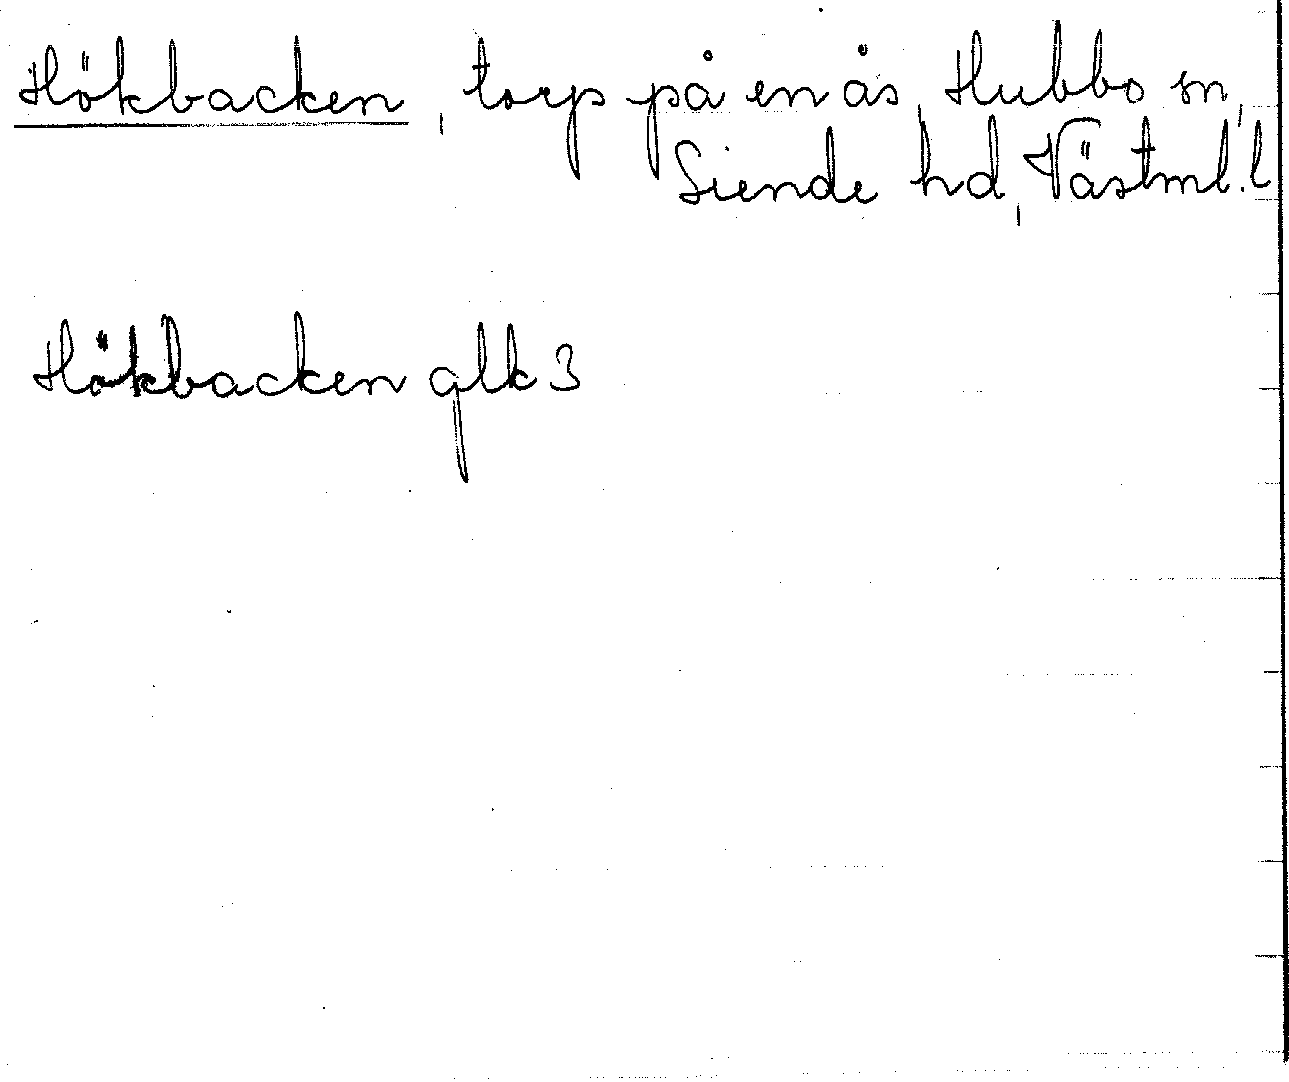 Hökbacken, torp på en ås, Hubbo sn,
Siende hd, Västml. l
Hökbacken glk 3